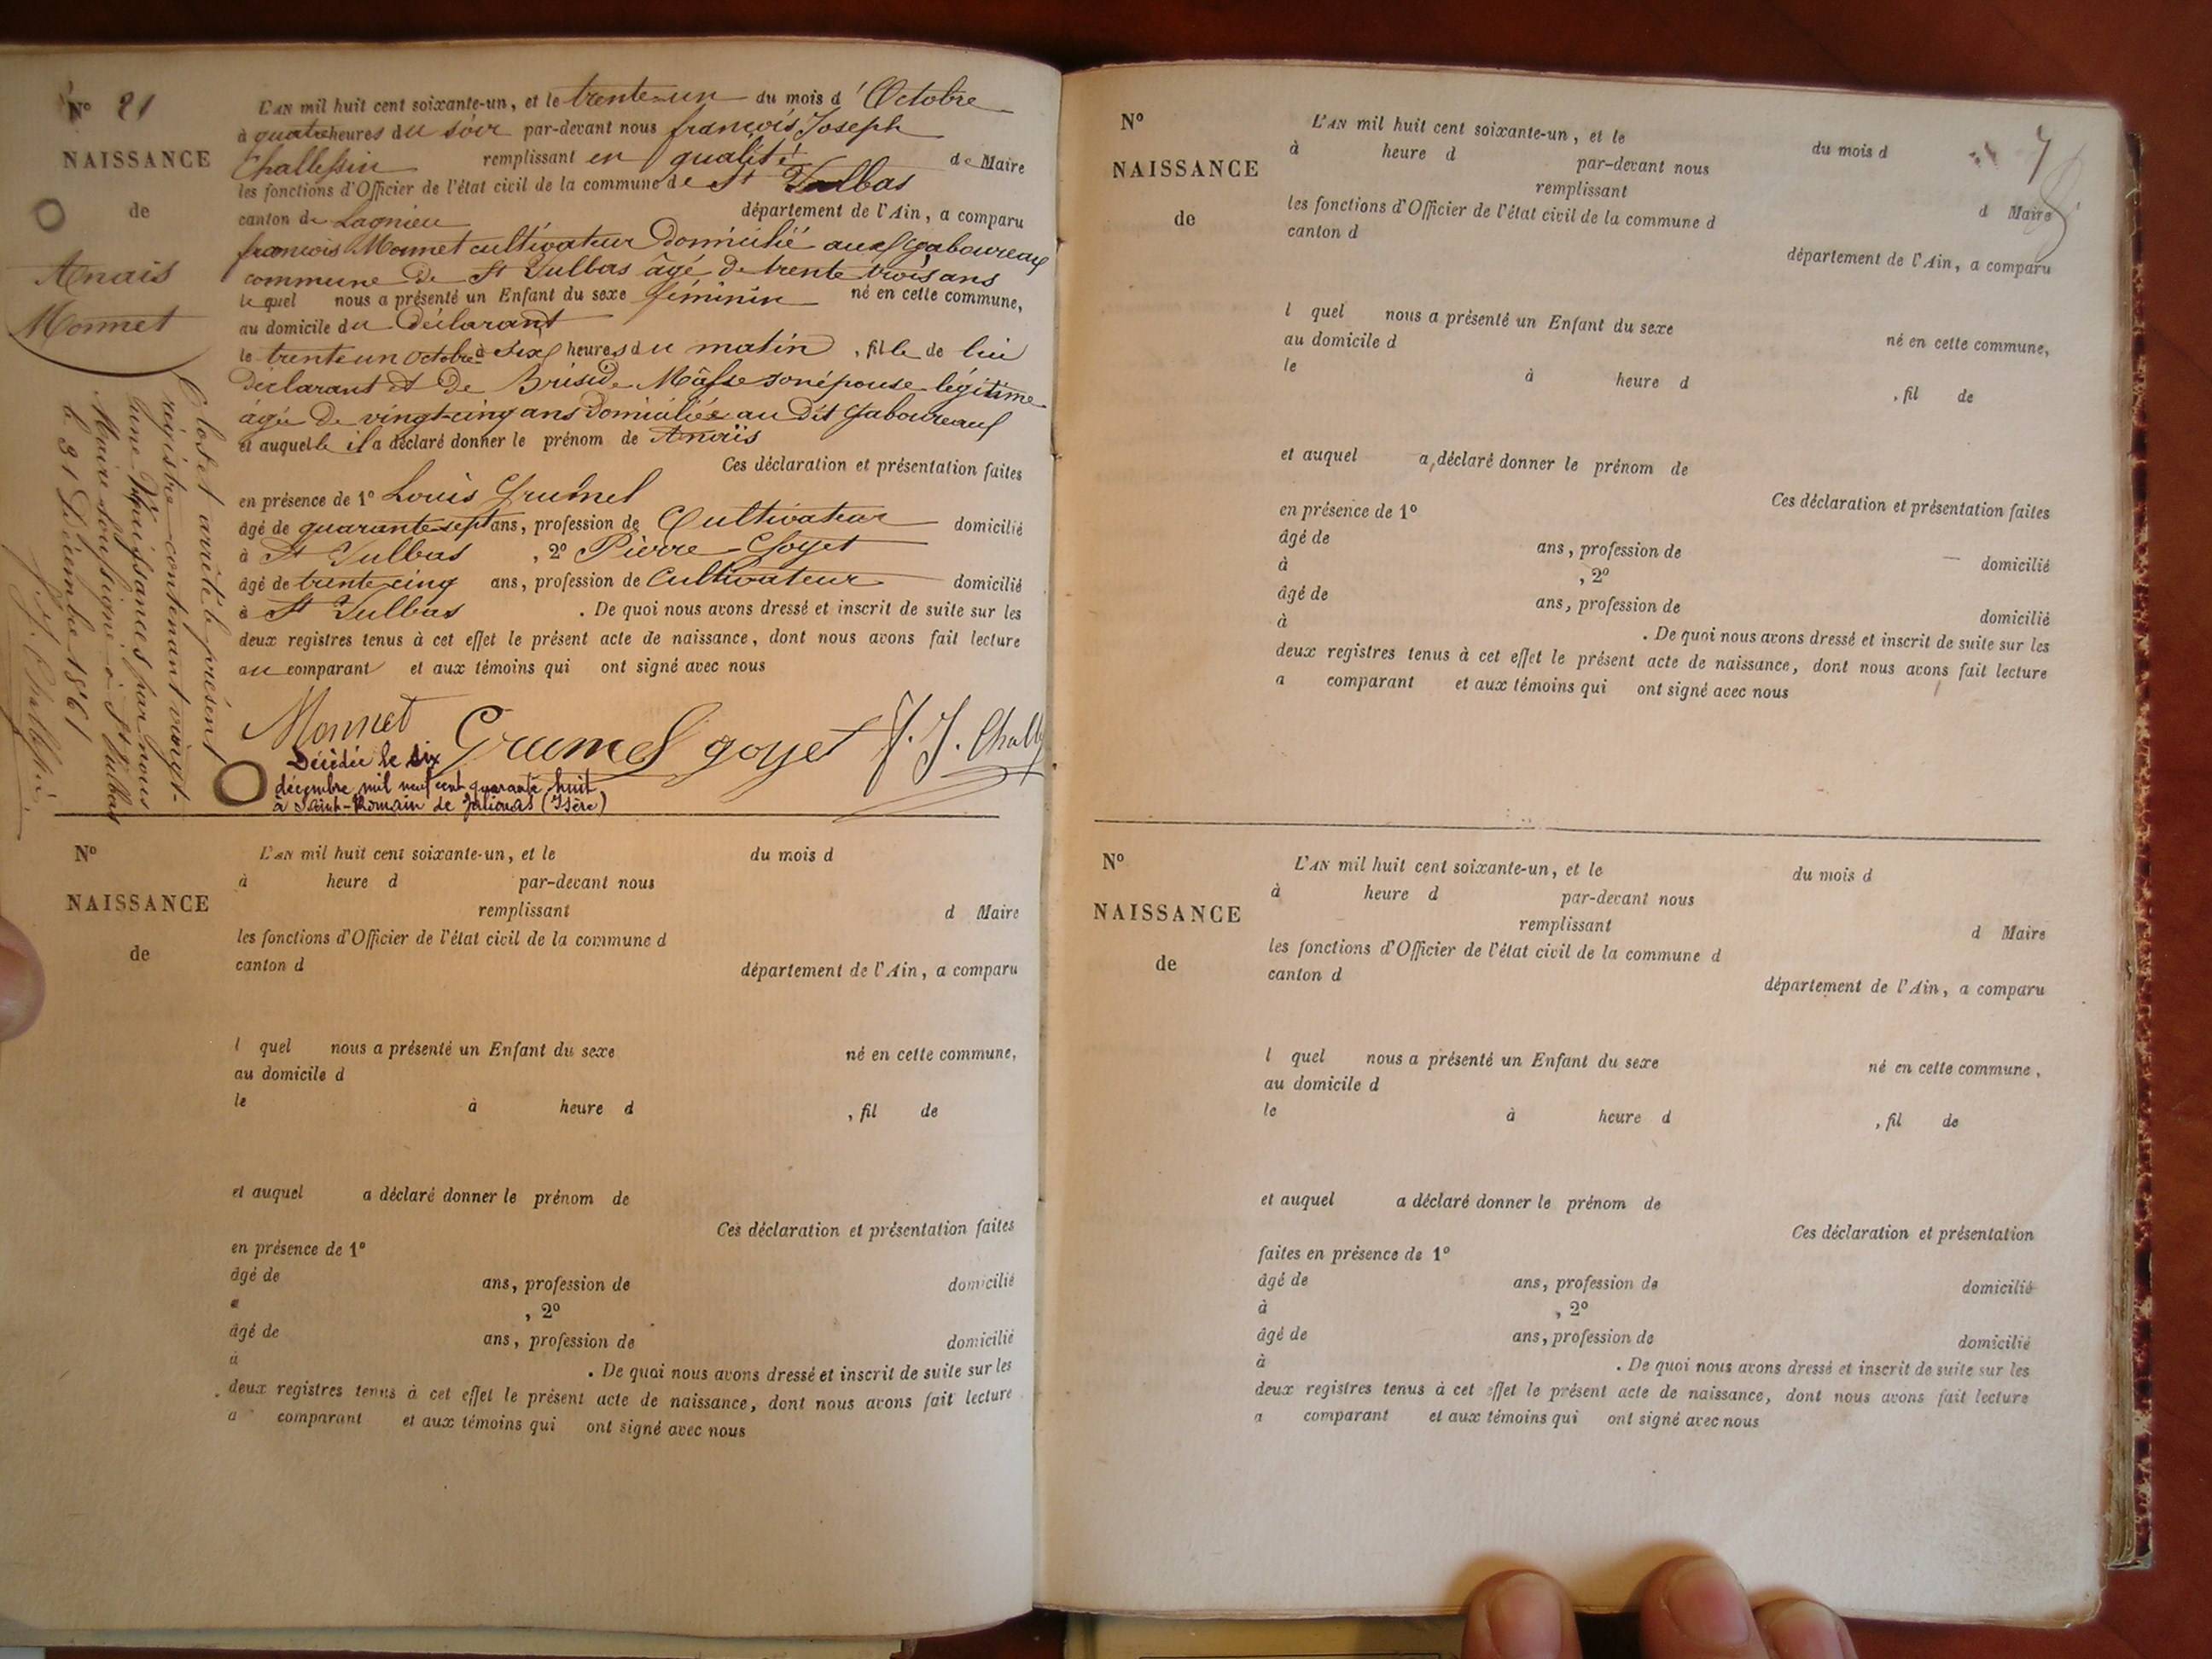 N° 21
NAISSANCE
de
Anais
Monnet
L'AN mil huit cent soixante-un, et le trente-un du mois d'Octobre
à quatre heures du soir par-devant nous françois Joseph
Challessin remplissant en qualité de Maire
les fonctions d'Officier de l'état civil de la commune de St Vulbas
canton de Lagnieu département de l'Ain, a comparu
francois Monnet cultivateur domicilié aux Gaboureaux
commune de St Vulbas âgé de trente trois ans
lequel nous a présenté un Enfant du sexe féminin né en cette commune,
au domicile du Déclarant
le trente un octobre à six heures du matin, fille de lui
Déclarant et de Briséide Mâsse son épouse légitime
âgée de vingt-cinq ans Domiciliée au dit Gaboureaux
et auquelle il a déclaré donner le prénom de Anaïs
Ces déclaration et présentation faites
en présence de 1° Louis Grumel
âgé de quarante-sept ans, profession de Cultivateur domicilié
à St Vulbas, 2° Pierre Goyet
âgé de trente-cinq ans, profession de Cultivateur domicilié
à St Vulbas. De quoi nous avons dressé et inscrit de suite sur les
deux registres tenus à cet effet le présent acte de naissance, dont nous avons fait lecture
au comparant et aux témoins qui ont signé avec nous
Monnet Grumel goyet f. J. Chall
Décédée le six
décembre mil neuf cent quarante huit
à Saint-Romain de Jalionas (Isère)
Clos et arrêté le présent
régistre contenant vingt-
une Naissances par nous
Maire soussigné à St Vulbas
le 31 Décembre 1861
f. J. Challessin
N°
NAISSANCE
de
L'AN mil huit cent soixante-un, et le du mois d
à heure d par-devant nous
remplissant d Maire
les fonctions d'Officier de l'état civil de la commune d
canton d département de l'Ain, a comparu
l quel nous a présenté un Enfant du sexe né en cette commune,
au domicile d
le à heure d , fil de
et auquel a déclaré donner le prénom de
Ces déclaration et présentation faites
en présence de 1°
âgé de ans, profession de domicilié
à , 2°
âgé de ans, profession de domicilié
à . De quoi nous avons dressé et inscrit de suite sur les
deux registres tenus à cet effet le présent acte de naissance, dont nous avons fait lecture
a comparant et aux témoins qui ont signé avec nous
7
N°
NAISSANCE
de
L'AN mil huit cent soixante-un, et le du mois d
à heure d par-devant nous
remplissant d Maire
les fonctions d'Officier de l'état civil de la commune d
canton d département de l'Ain, a comparu
l quel nous a présenté un Enfant du sexe né en cette commune,
au domicile d
le à heure d , fil de
et auquel a déclaré donner le prénom de
Ces déclaration et présentation faites
en présence de 1°
âgé de ans, profession de domicilié
à , 2°
âgé de ans, profession de domicilié
à . De quoi nous avons dressé et inscrit de suite sur les
deux registres tenus à cet effet le présent acte de naissance, dont nous avons fait lecture
a comparant et aux témoins qui ont signé avec nous
N°
NAISSANCE
de
L'AN mil huit cent soixante-un, et le du mois d
à heure d par-devant nous
remplissant d Maire
les fonctions d'Officier de l'état civil de la commune d
canton d département de l'Ain, a comparu
l quel nous a présenté un Enfant du sexe né en cette commune,
au domicile d
le à heure d , fil de
et auquel a déclaré donner le prénom de
Ces déclaration et présentation
faites en présence de 1°
âgé de ans, profession de domicilié
à , 2°
âgé de ans, profession de domicilié
à . De quoi nous avons dressé et inscrit de suite sur les
deux registres tenus à cet effet le présent acte de naissance, dont nous avons fait lecture
a comparant et aux témoins qui ont signé avec nous